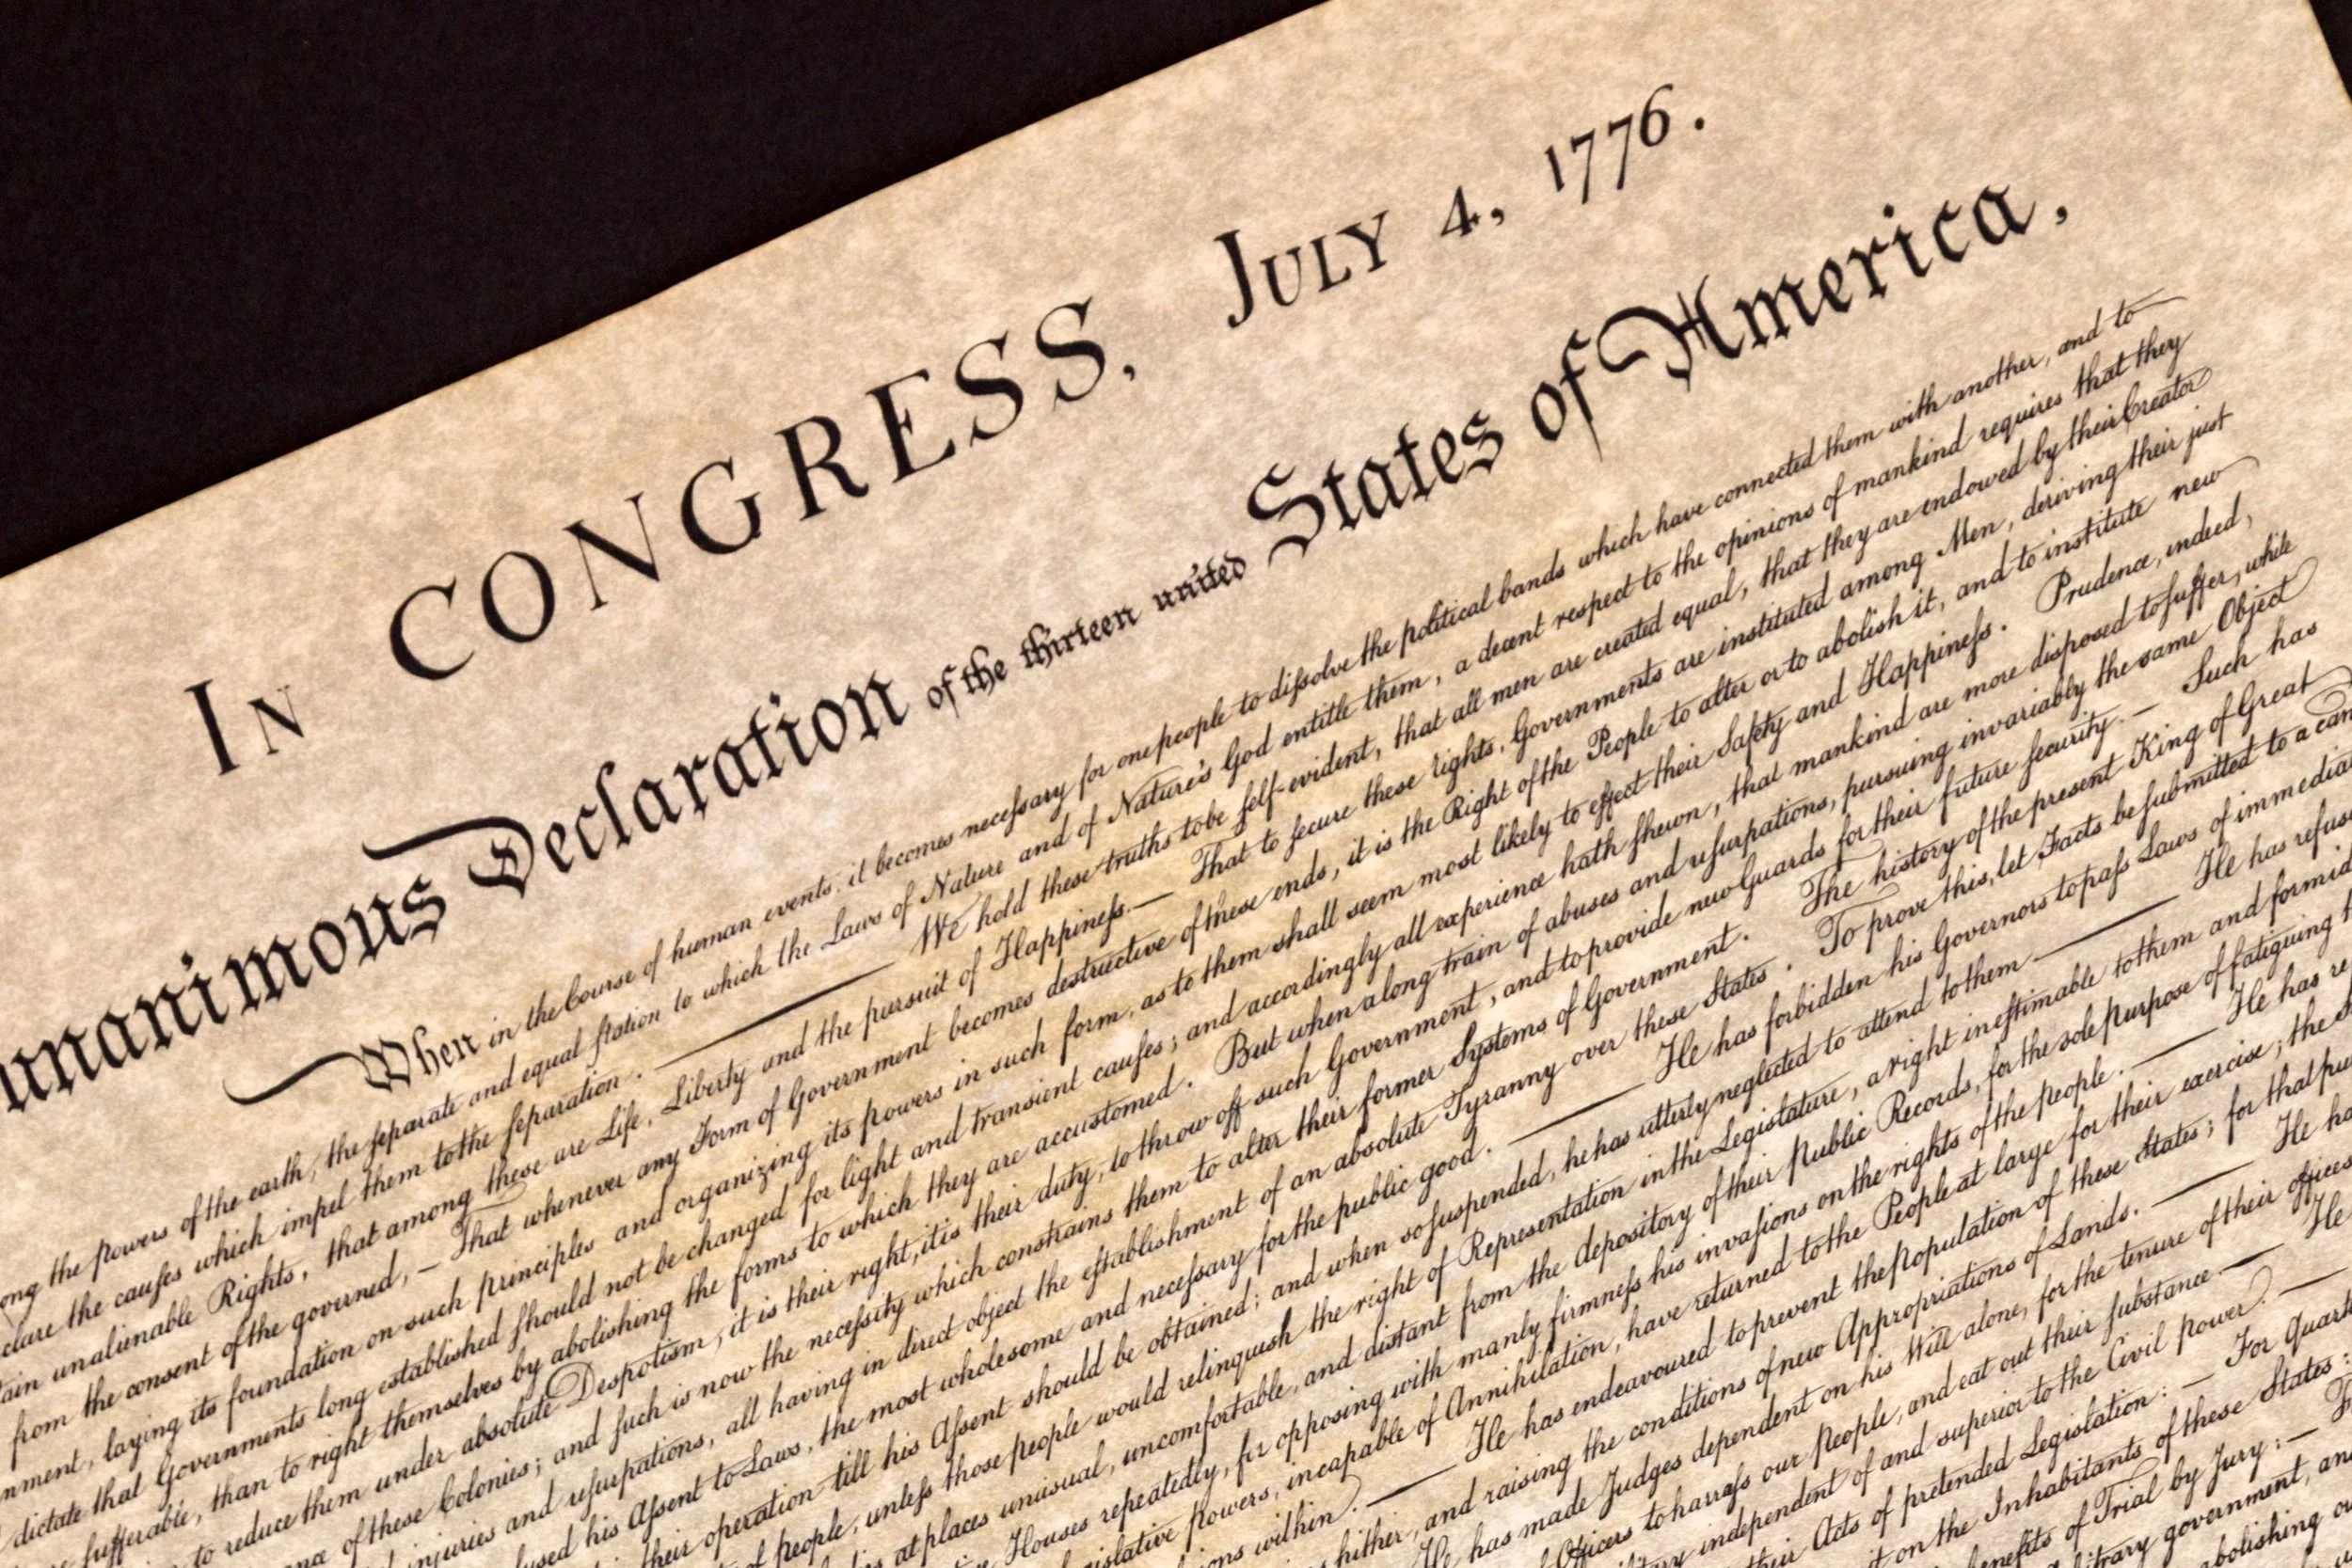 IN CONGRESS, JULY 4, 1776.
unanimous Declaration of the thirteen united States of America,
When in the Course of human events, it becomes necessary for one people to dissolve the political bands which have connected them with another, and to
ong the powers of the earth, the separate and equal station to which the Laws of Nature and of Nature's God entitle them, a decent respect to the opinions of mankind requires that they
clare the causes which impel them to the separation. — We hold these truths to be self-evident, that all men are created equal, that they are endowed by their Creator
tain unalienable Rights, that among these are Life, Liberty and the pursuit of Happiness.— That to secure these rights, Governments are instituted among Men, deriving their just
from the consent of the governed, — That whenever any Form of Government becomes destructive of these ends, it is the Right of the People to alter or to abolish it, and to institute new
nment, laying its foundation on such principles and organizing its powers in such form, as to them shall seem most likely to effect their Safety and Happiness. Prudence, indeed,
dictate that Governments long established should not be changed for light and transient causes; and accordingly all experience hath shewn, that mankind are more disposed to suffer, while
sufferable, than to right themselves by abolishing the forms to which they are accustomed. But when a long train of abuses and usurpations, pursuing invariably the same Object
to reduce them under absolute Despotism, it is their right, it is their duty, to throw off such Government, and to provide new Guards for their future security.— Such has
ance of these Colonies; and such is now the necessity which constrains them to alter their former Systems of Government. The history of the present King of Great
injuries and usurpations, all having in direct object the establishment of an absolute Tyranny over these States. To prove this, let Facts be submitted to a can
used his Assent to Laws, the most wholesome and necessary for the public good. — He has forbidden his Governors to pass Laws of immedia
their operation till his Assent should be obtained; and when so suspended, he has utterly neglected to attend to them — He has refus
of people, unless those people would relinquish the right of Representation in the Legislature, a right inestimable to them and formid
at places unusual, uncomfortable, and distant from the depository of their Public Records, for the sole purpose of fatiguing
Houses repeatedly, for opposing with manly firmness his invasions on the rights of the people. — He has re
gislative Powers, incapable of Annihilation, have returned to the People at large for their exercise; the
ions within. — He has endeavoured to prevent the Population of these States; for that pur
hither, and raising the conditions of new Appropriations of Lands. — He ha
He has made Judges dependent on his Will alone, for the tenure of their offices
Officers to harrass our People, and eat out their substance.— He
independent of and superior to the Civil power. —
their Acts of pretended Legislation: — For Quart
on the Inhabitants of these States:
benefits of Trial by Jury: —
government, an
abolishing